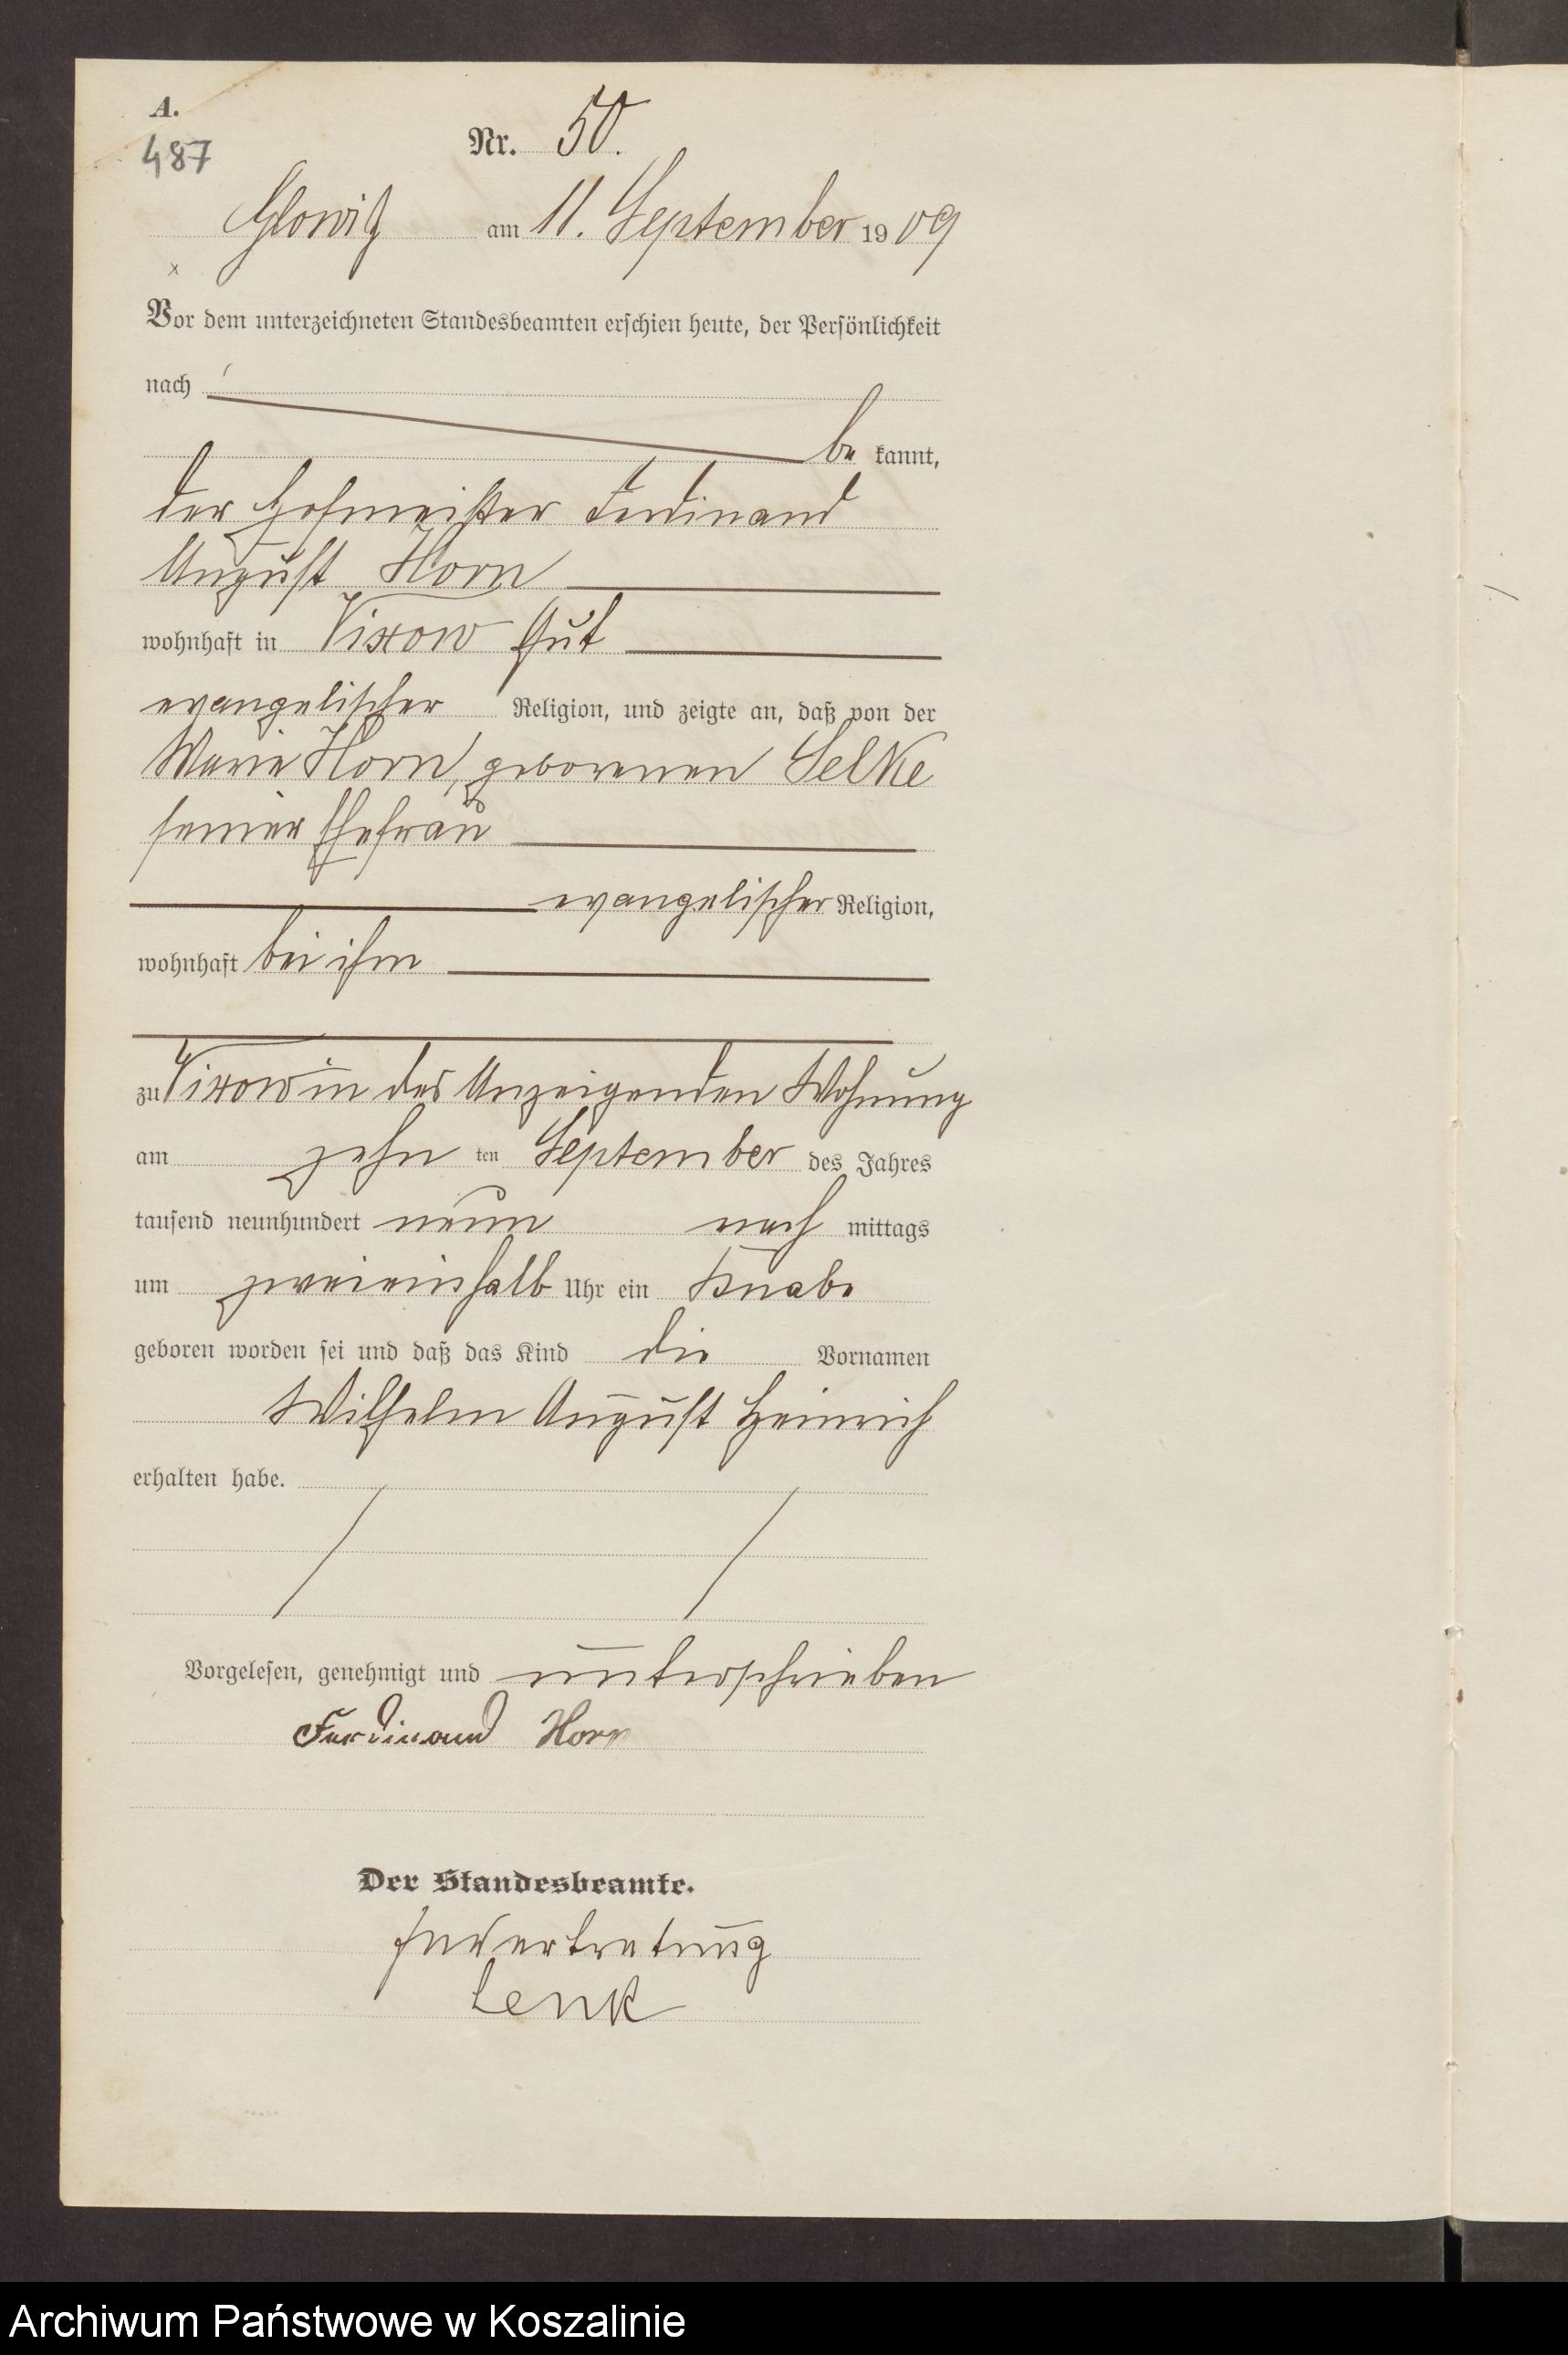 A.
487
Nr. 50.
Glowitz am 11. September 1909
x
Vor dem unterzeichneten Standesbeamten erschien heute, der Persönlichkeit
nach
be kannt,
der Hofmeister Ferdinand
August Horn
wohnhaft in Vixow Gut
evangelischer Religion, und zeigte an, daß von der
Marie Horn, geborenen Selke
seiner Ehefrau
evangelischer Religion,
wohnhaft bei ihm
zu Vixow in des Anzeigenden Wohnung
am zehn ten September des Jahres
tausend neunhundert neun nach mittags
um zweieinhalb Uhr ein Knabe
geboren worden sei und daß das Kind die Vornamen
Wilhelm August Heinrich
erhalten habe.
Vorgelesen, genehmigt und unterschrieben
Ferdinand Horn
Der Standesbeamte.
In Vertretung
Lenk
Archiwum Państwowe w Koszalinie